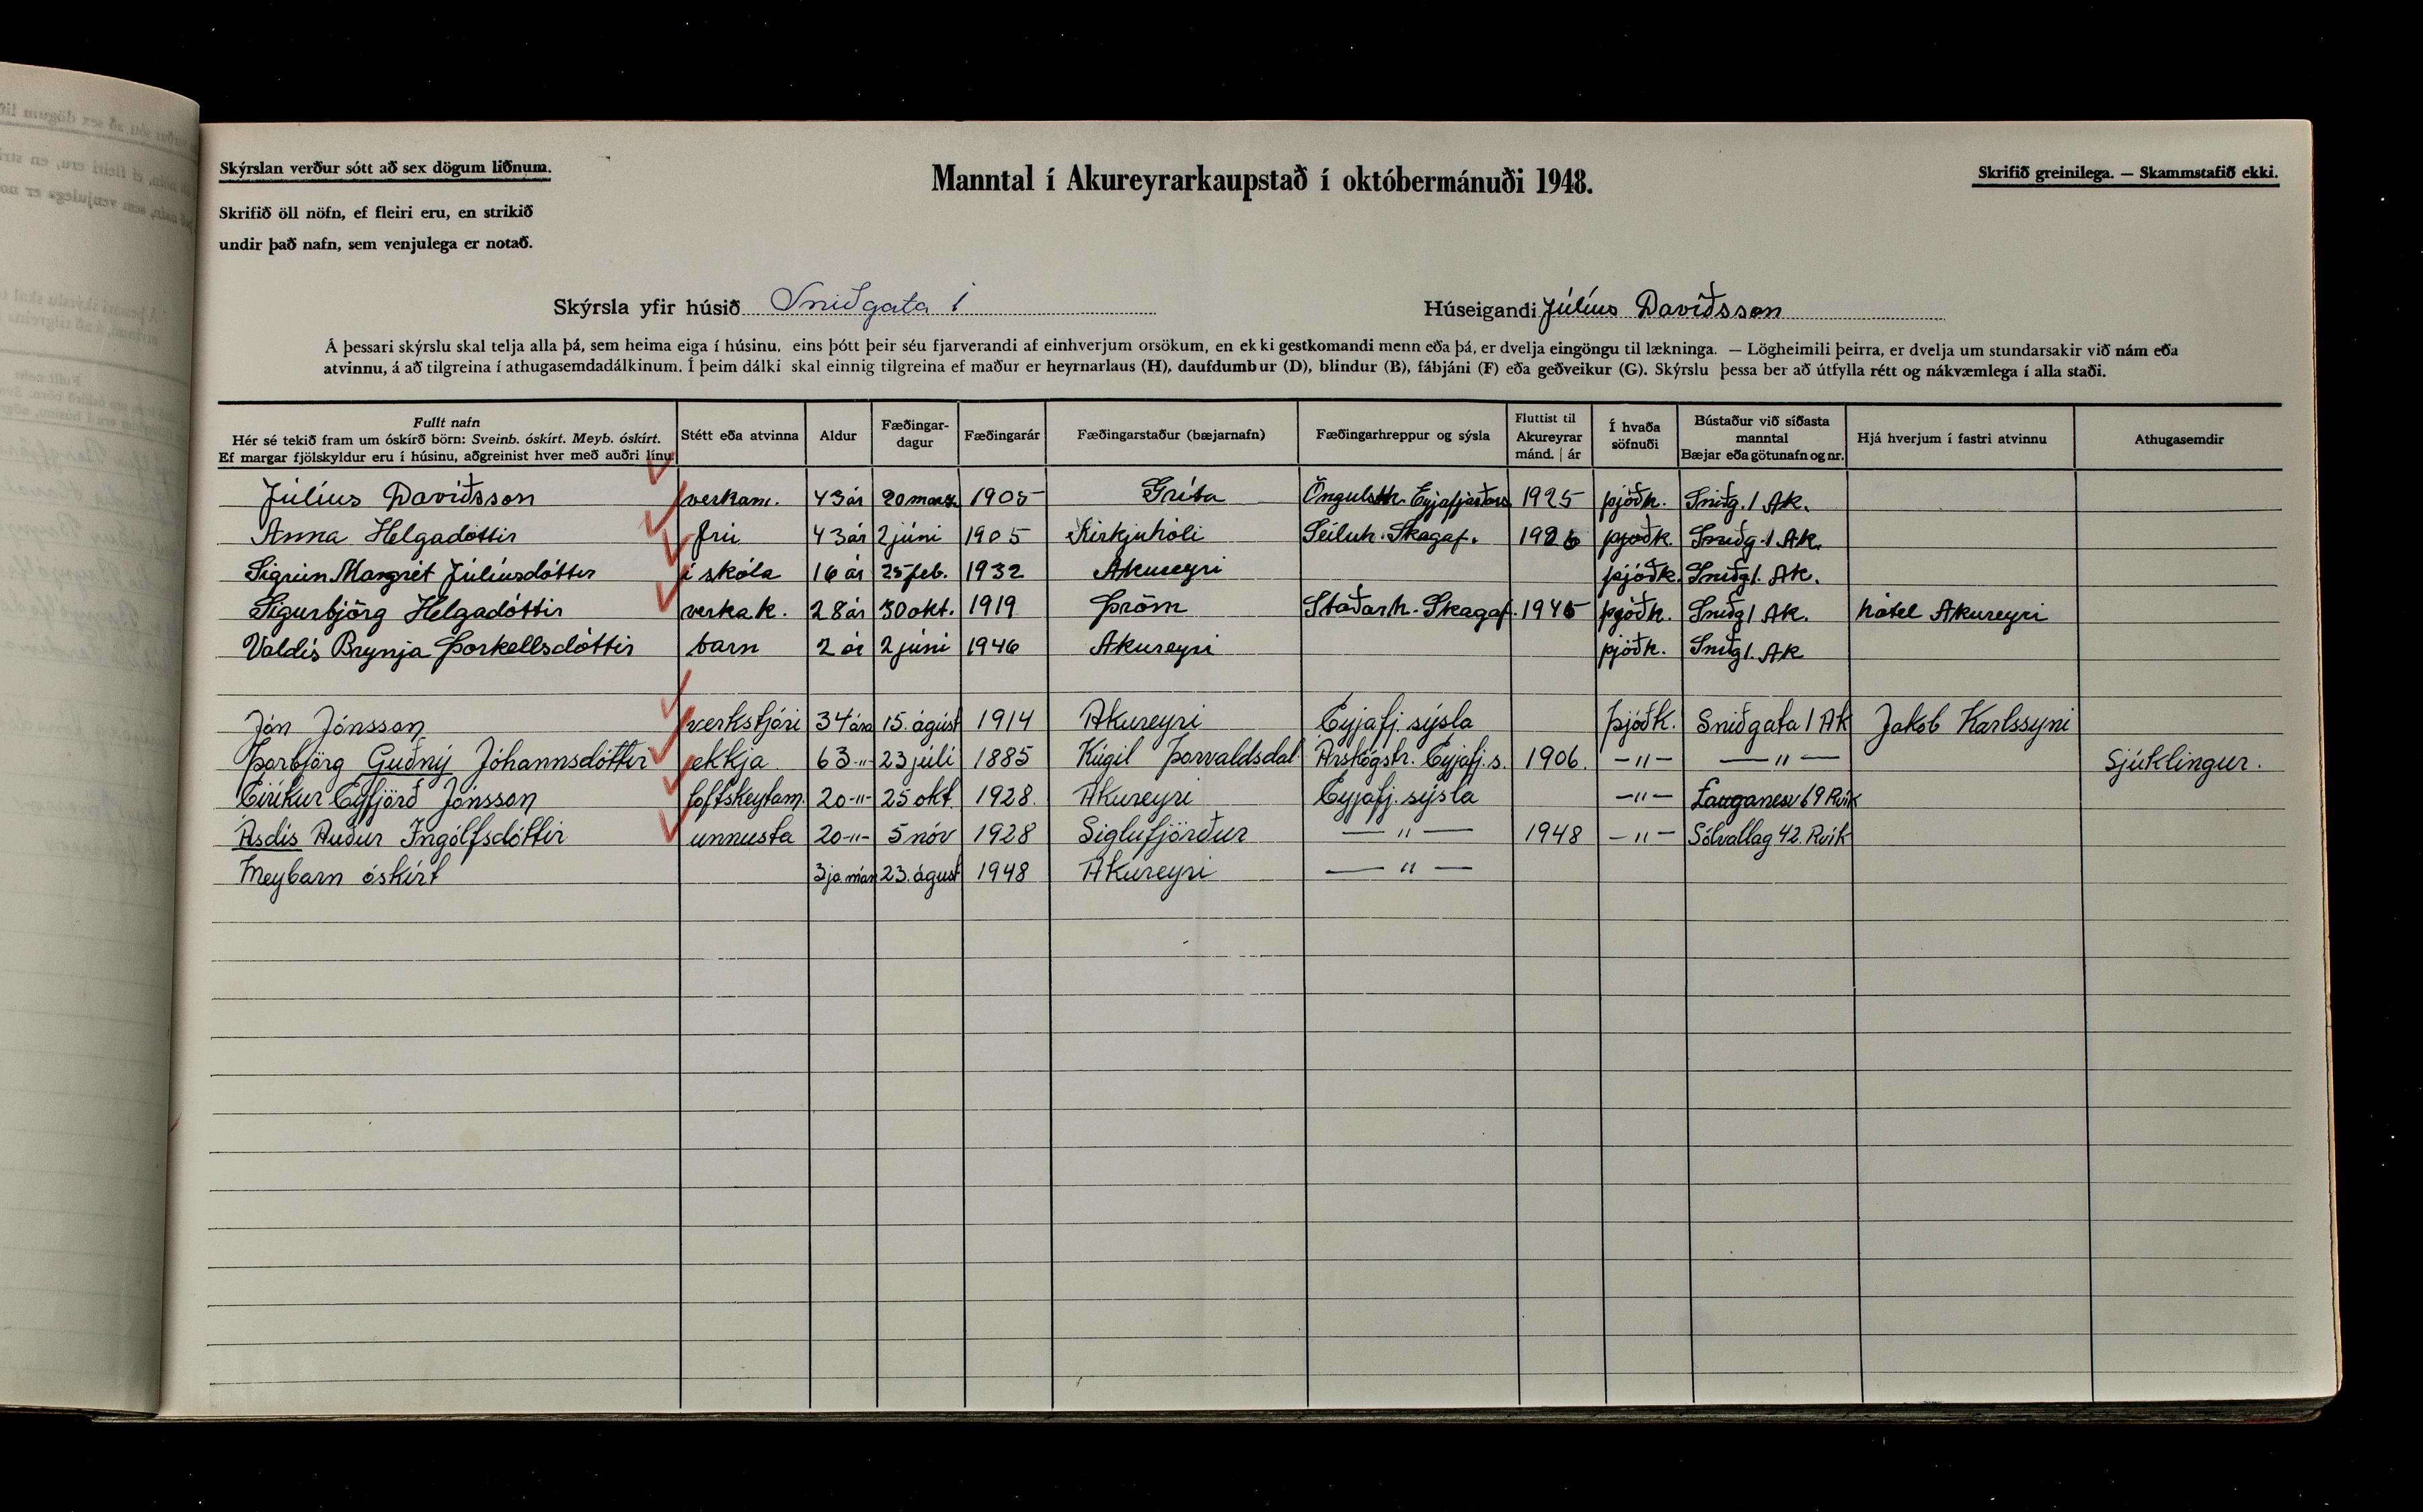 Skýrslan verður sótt að sex dögum liðnum.
Manntal í Akureyrarkaupstað í októbermánuði 1948.
Skrifið greinilega. — Skammstafið ekki.
Skrifið öll nöfn, ef fleiri eru, en strikið
undir það nafn, sem venjulega er notað.
Skýrsla yfir húsið Sniðgata 1 Húseigandi Júlíus Davíðsson
Á þessari skýrslu skal telja alla þá, sem heima eiga í húsinu, eins þótt þeir séu fjarverandi af einhverjum orsökum, en ekki gestkomandi menn eða þá, er dvelja eingöngu til lækninga. — Lögheimili þeirra, er dvelja um stundarsakir við nám eða
atvinnu, á að tilgreina í athugasemdadálkinum. Í þeim dálki skal einnig tilgreina ef maður er heyrnarlaus (H), daufdumbur (D), blindur (B), fábjáni (F) eða geðveikur (G). Skýrslu þessa ber að útfylla rétt og nákvæmlega í alla staði.
Fullt nafn
Hér sé tekið fram um óskírð börn: Sveinb. óskírt. Meyb. óskírt.
Ef margar fjölskyldur eru í húsinu, aðgreinist hver með auðri línu.
Stétt eða atvinna
Aldur
Fæðingar-
dagur
Fæðingarár
Fæðingarstaður (bæjarnafn)
Fæðingarhreppur og sýsla
Fluttist til
Akureyrar
mánd. | ár
Í hvaða
söfnuði
Bústaður við síðasta
manntal
Bæjar eða götunafn og nr.
Hjá hverjum í fastri atvinnu
Athugasemdir
Júlíus Davíðsson verkam. 43 ár 20 marz 1905 Gríta Öngulsth. Eyjafjarðars 1925 þjóðk. Sniðg. 1 Ak.
Anna Helgadóttir frú 43 ár 2 júni 1905 Kirkjuhóli Seiluh. Skagaf. 1926 þjóðk. Sniðg. 1 Ak.
Sigrún Margrét Júlíusdóttir í skóla 16 ár 25 feb. 1932 Akureyri þjóðk. Sniðg 1. Ak.
Sigurbjörg Helgadóttir verkak. 28 ár 30 okt. 1919 Þröm Staðarh. Skagaf. 1945 þjóðk. Sniðg 1 Ak. hótel Akureyri
Valdís Brynja Þorkellsdóttir barn 2 ár 2 júni 1946 Akureyri þjóðk. Sniðg 1. Ak
Jón Jónsson verkstjóri 34 ára 15. ágúst 1914 Akureyri Eyjafj. sýsla þjóðk. Sniðgata 1 Ak Jakob Karlssyni
Þorbjörg Guðný Jóhannsdóttir ekkja 63 -"- 23 júlí 1885 Kúgil Þorvaldsdal Árskógstr. Eyjafj. s. 1906. -"- -"- Sjúklingur.
Eiríkur Eyfjörð Jónsson loftskeytam. 20 -"- 25 okt. 1928. Akureyri Eyjafj. sýsla -"- Lauganesv 69 Rvík
Ásdís Auður Ingólfsdóttir unnusta 20 -"- 5 nóv 1928 Siglufjörður -"- 1948 -"- Sólvallag 42. Rvík
Meybarn óskírt 3ja mán 23. ágúst 1948 Akureyri -"-